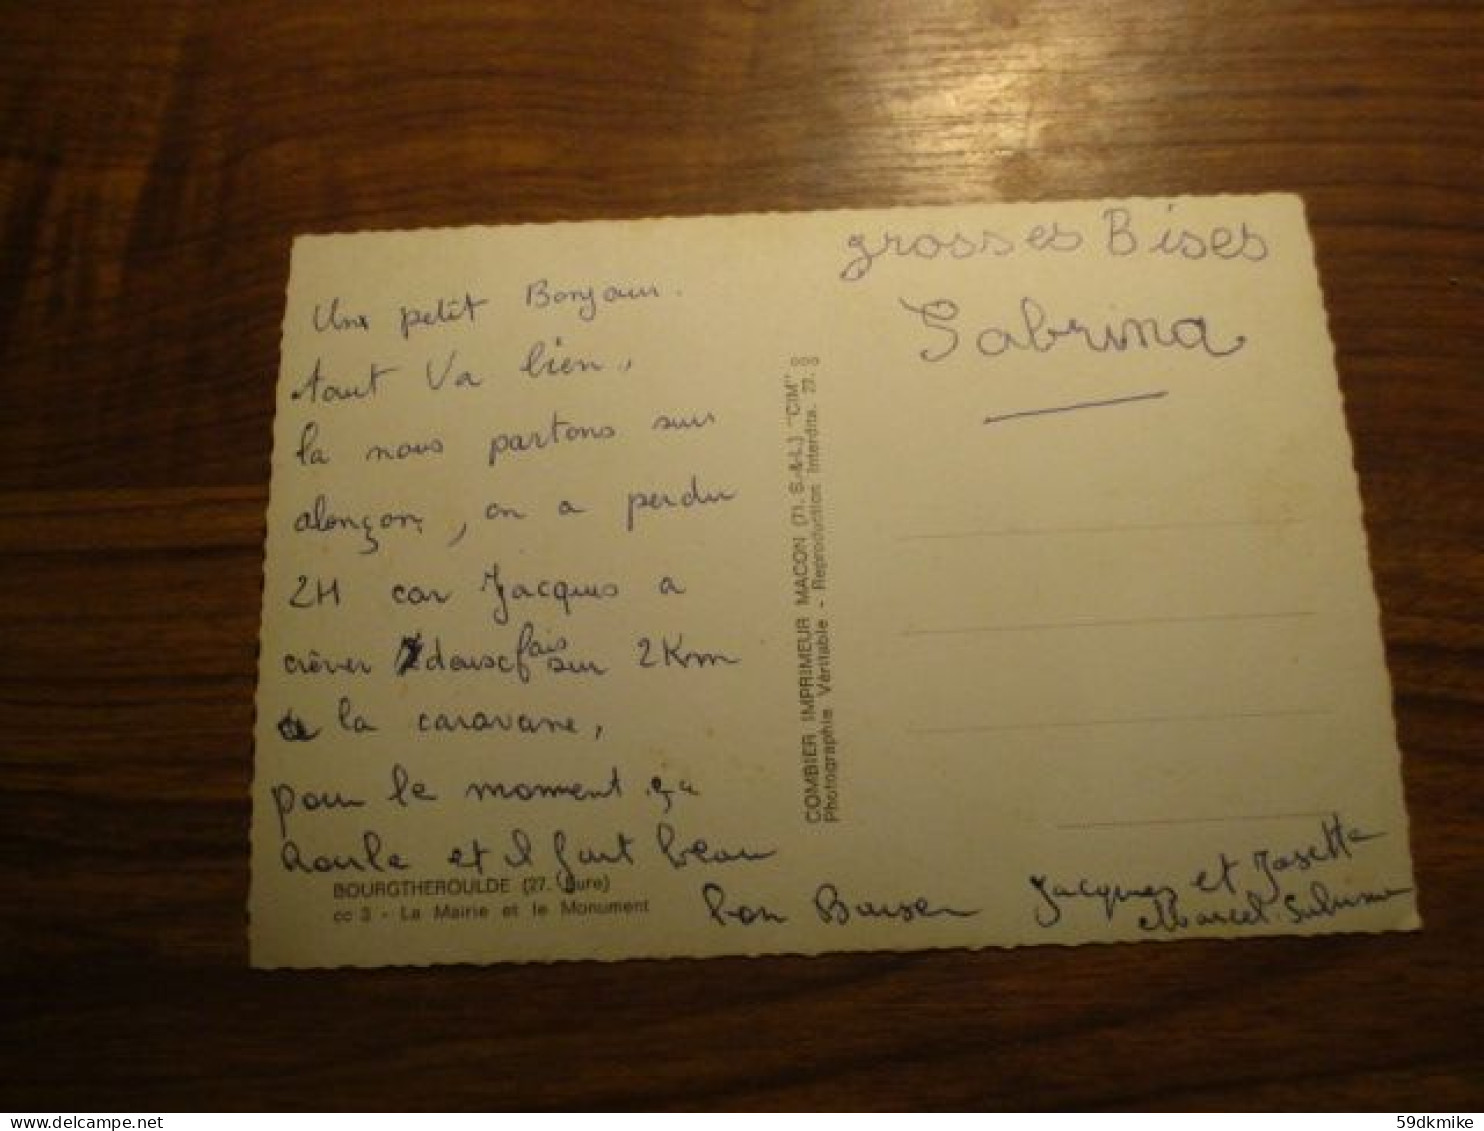 Un petit Bonjour.
tout Va bien,
la nous partons sur
alençon, on a perdu
2H car Jacques a
crêver 2 fois sur 2Km
la caravane,
pour le moment ça
roule et il fait beau
bon Baiser
grosses Bises
Sabrina
Jacques et Josette
Marcel
BOURGTHEROULDE (27. Eure)
cc 3 - La Mairie et le Monument
COMBIER IMPRIMEUR MACON (71. S.-&-L.) "CIM"
Photographie Véritable - Reproduction Interdite. 27.
59dkmike